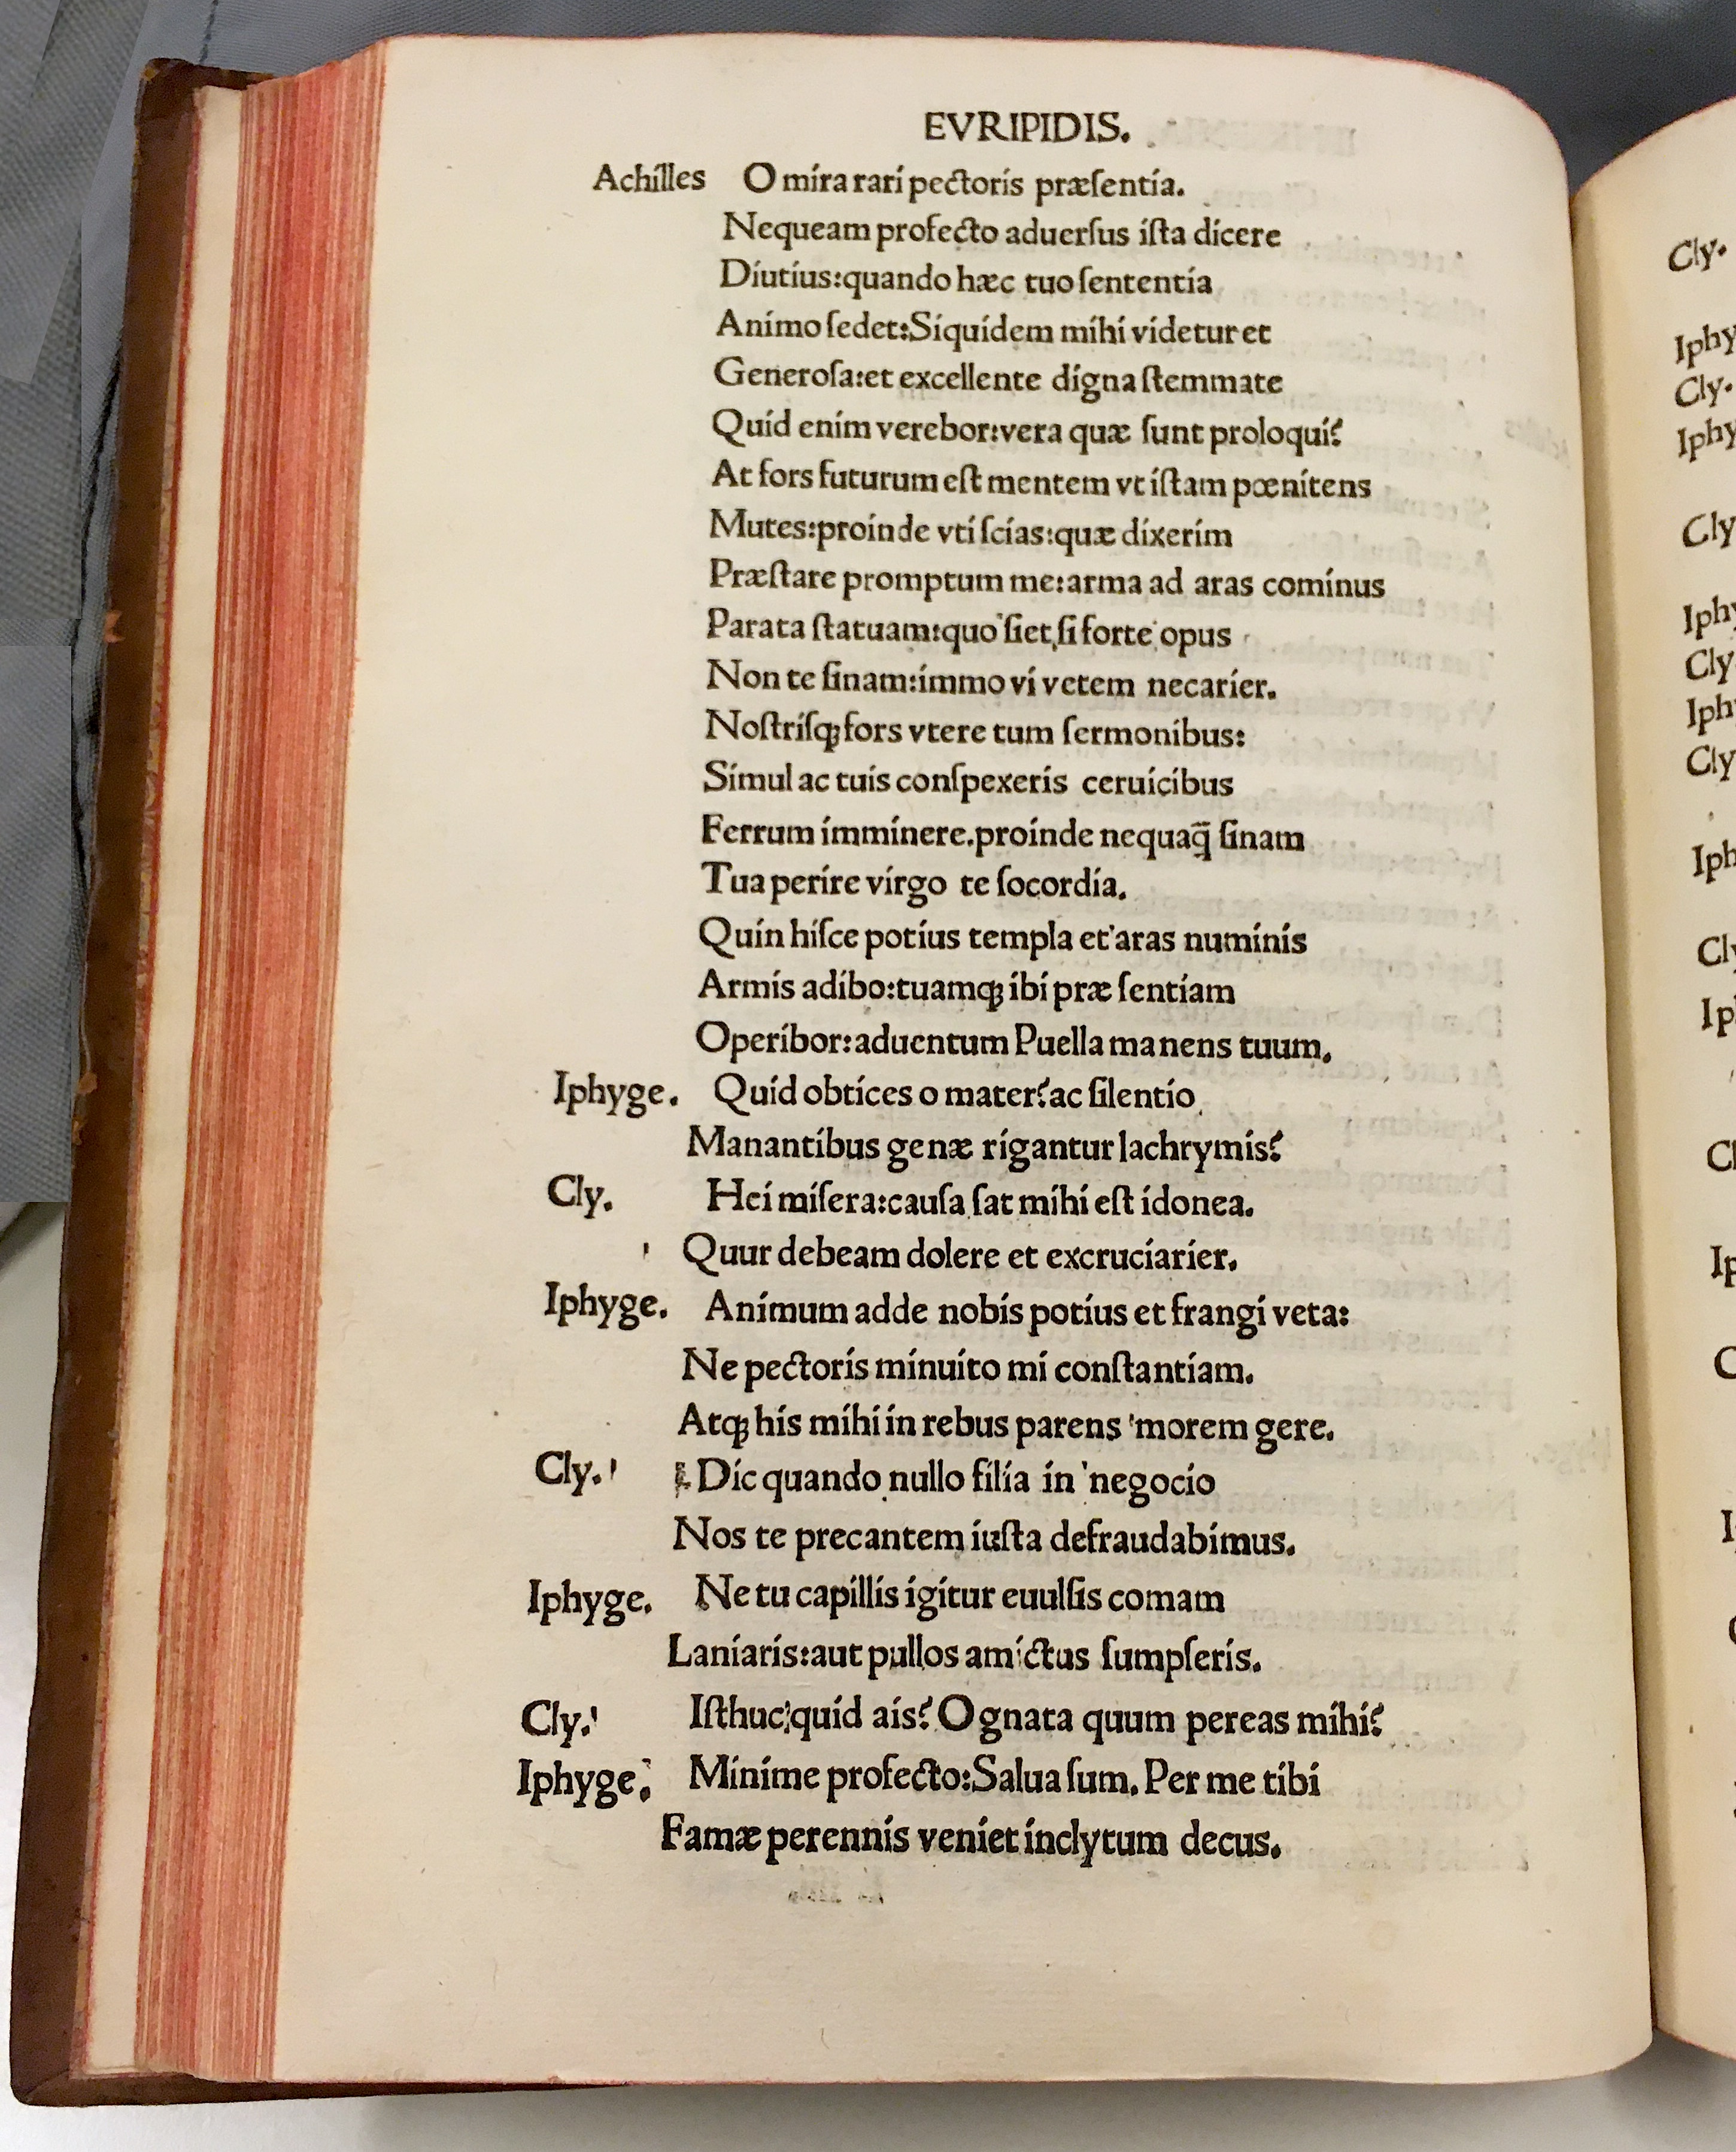 EVRIPIDIS.
Achilles O mira rari pectoris præſentia.
Nequeam profecto aduerſus iſta dicere
Diutius:quando hæc tuo ſententia
Animo ſedet:Siquidem mihi videtur et
Generoſa:et excellente digna ſtemmate
Quid enim verebor:vera quæ ſunt proloqui?
At fors futurum eſt mentem vt iſtam pœnitens
Mutes:proinde vti ſcias:quæ dixerim
Præſtare promptum me:arma ad aras cominus
Parata ſtatuam:quo ſiet,ſi forte opus
Non te ſinam:immo vi vetem necarier.
Noſtriſqꝫ fors vtere tum ſermonibus:
Simul ac tuis conſpexeris ceruicibus
Ferrum imminere.proinde nequaq̃ ſinam
Tua perire virgo te ſocordia.
Quin hiſce potius templa et aras numinis
Armis adibo:tuamqꝫ ibi præ ſentiam
Operibor:aduentum Puella manens tuum.
Iphyge. Quid obtices o mater?ac ſilentio
Manantibus genæ rigantur lachrymis?
Cly. Hei miſera:cauſa ſat mihi eſt idonea.
Quur debeam dolere et excruciarier.
Iphyge. Animum adde nobis potius et frangi veta:
Ne pectoris minuito mi conſtantiam.
Atqꝫ his mihi in rebus parens morem gere.
Cly. Dic quando nullo filia in negocio
Nos te precantem iuſta defraudabimus.
Iphyge. Ne tu capillis igitur euulſis comam
Laniaris:aut pullos amictus ſumpſeris.
Cly. Iſthuc quid ais? O gnata quum pereas mihi?
Iphyge. Minime profecto:Salua ſum. Per me tibi
Famæ perennis veniet inclytum decus.
Cly.
Iphy
Cly.
Iphy
Cly
Iphy
Cly
Iph
Cly
Iph
Cly
Ip
Cl
Ip
C
I